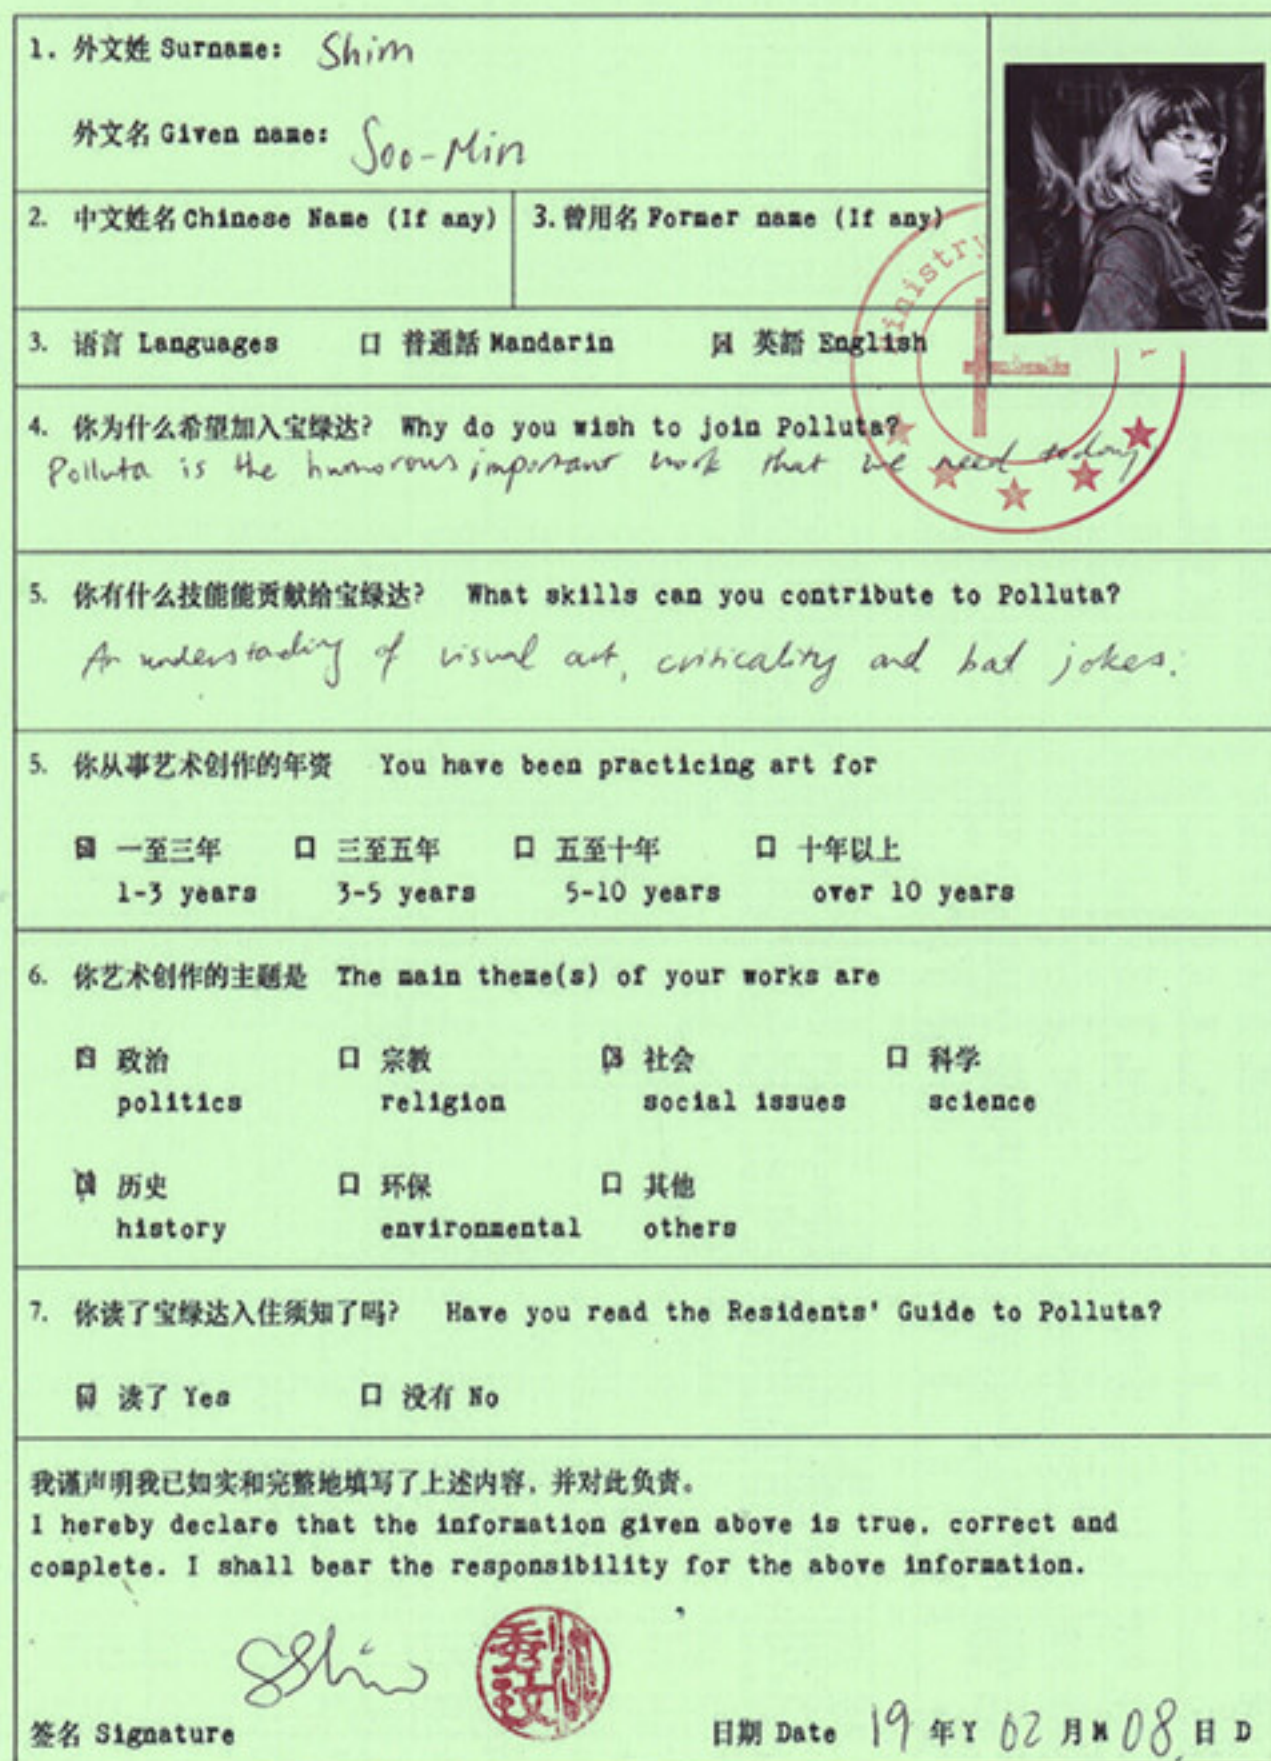 1. 外文姓 Surname: Shim
外文名 Given name: Soo-Min
2. 中文姓名 Chinese Name (If any) 3. 曾用名 Former name (If any)
inistry
3. 语言 Languages 普通話 Mandarin 英語 English
4. 你为什么希望加入宝绿达? Why do you wish to join Polluta?
Polluta is the humorous important work that we need today.
5. 你有什么技能能贡献给宝绿达? What skills can you contribute to Polluta?
An understanding of visual art, criticality and bad jokes.
5. 你从事艺术创作的年资 You have been practicing art for
一至三年 三至五年 五至十年 十年以上
1-3 years 3-5 years 5-10 years over 10 years
6. 你艺术创作的主题是 The main theme(s) of your works are
政治 宗教 社会 科学
politics religion social issues science
历史 环保 其他
history environmental others
7. 你读了宝绿达入住须知了吗? Have you read the Residents' Guide to Polluta?
读了 Yes 没有 No
我谨声明我已如实和完整地填写了上述内容，并对此负责。
I hereby declare that the information given above is true, correct and
complete. I shall bear the responsibility for the above information.
SShim
签名 Signature 日期 Date 19 年Y 02 月M 08 日 D